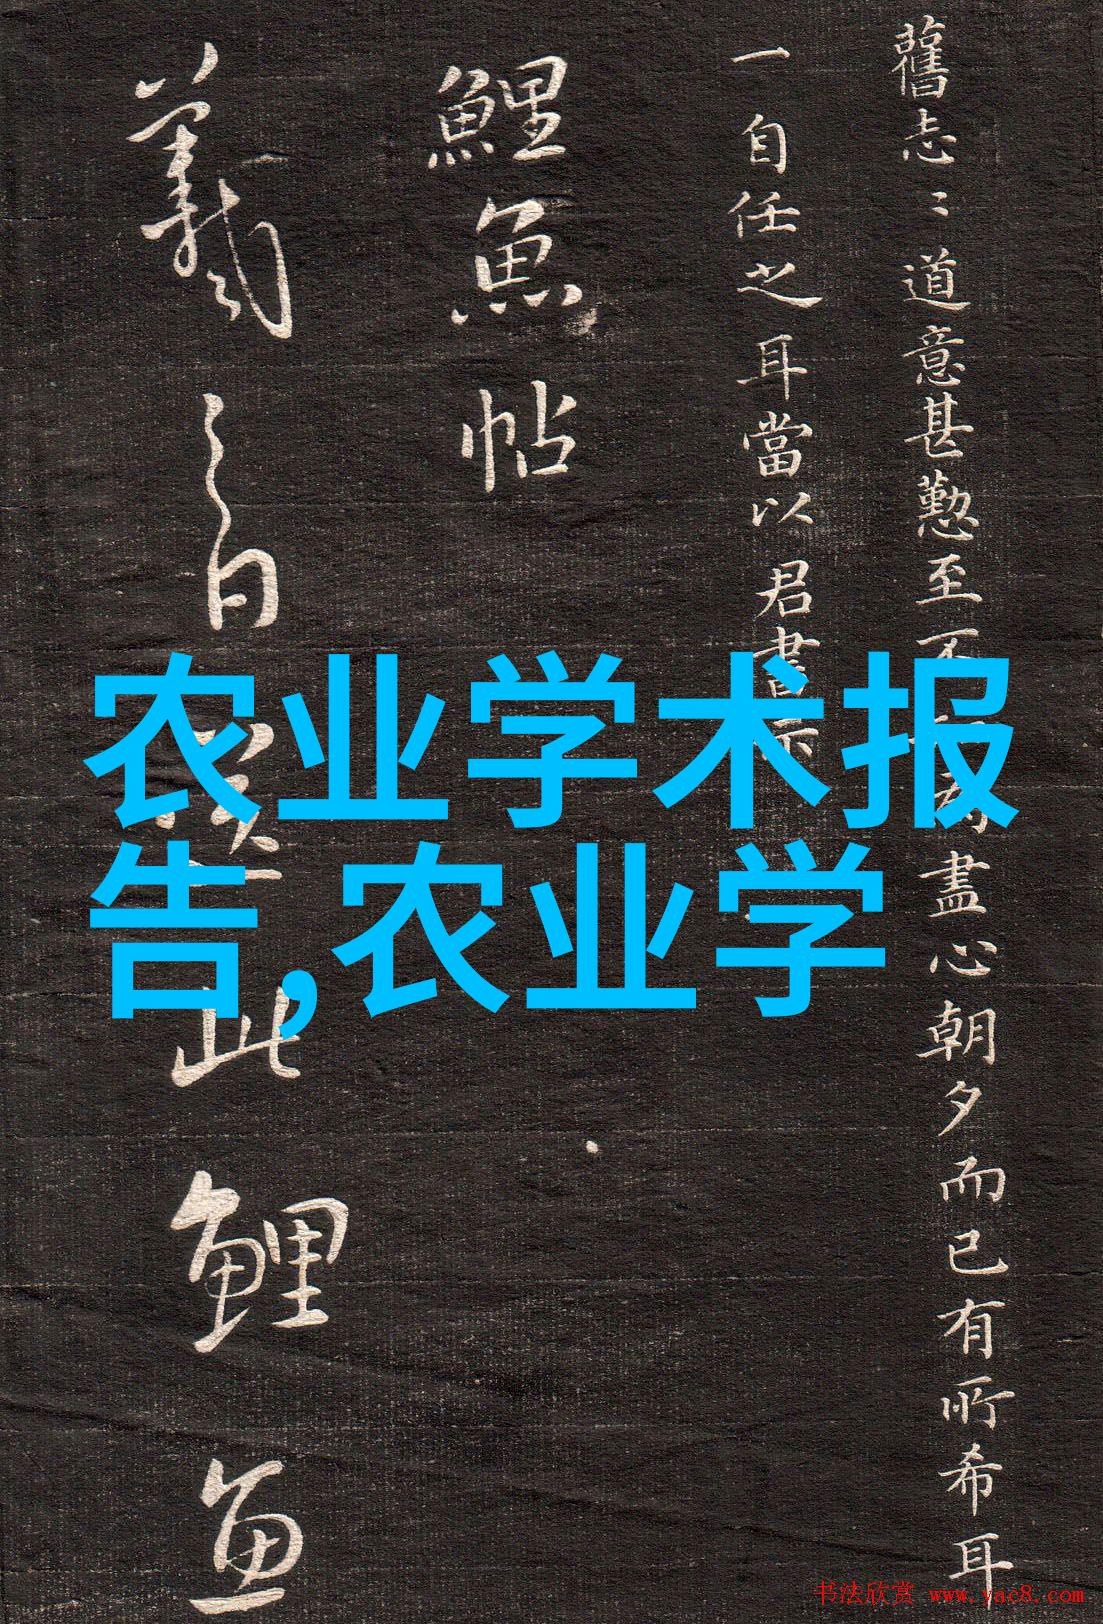 舊志〻道意甚懃至不
盡心朝夕而已有所希耳
一自任之耳當以君書示
鯉魚帖
羲之白
此鯉魚
农业学术报
告,农业学
书法欣赏 www.yac8.com